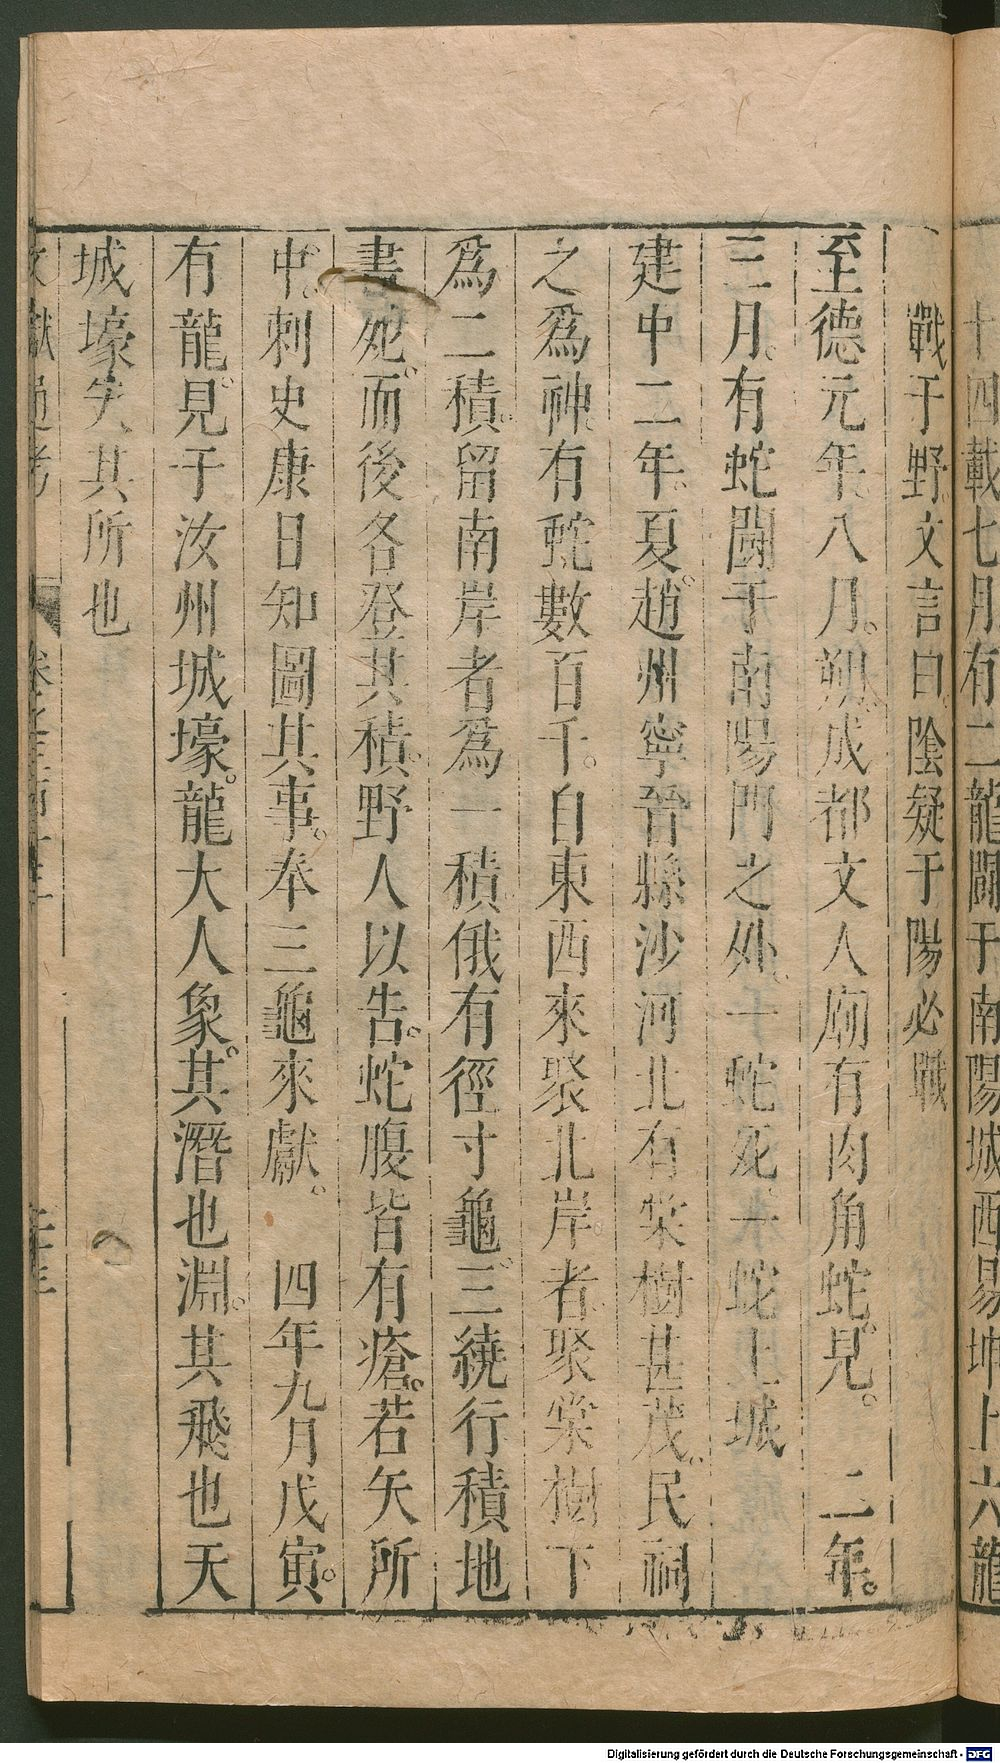 十四載七月有二龍鬪于南陽城西易坤上六龍
戰于野文言曰陰疑于陽必戰
至德元年八月朔成都文人廟有肉角蛇見　二年
三月有蛇鬪于南陽門之外一蛇死一蛇上城
建中二年夏趙州寧晉縣沙河北有棠樹甚茂民祠
之爲神有蛇數百千自東西來聚北岸者聚棠樹下
爲二積留南岸者爲一積俄有徑寸龜三繞行積地
盡死而後各登其積野人以告蛇腹皆有瘡若矢所
中刺史康日知圖其事奉三龜來獻　四年九月戊寅
有龍見于汝州城壕龍大人象其潛也淵其飛也天
城壕失其所也
文獻通考
Digitalisierung gefördert durch die Deutsche Forschungsgemeinschaft - DFG